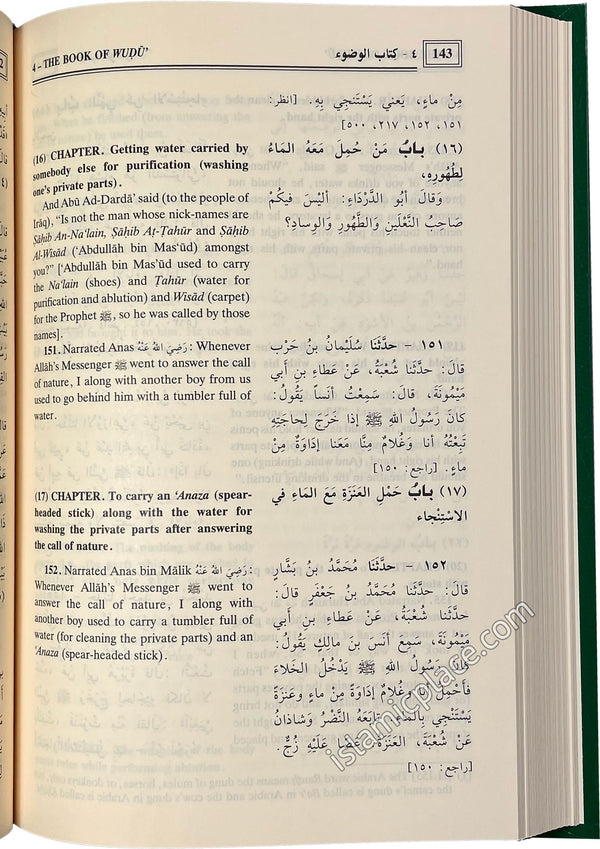 4 – THE BOOK OF WUḌŪ’
٤ - كتاب الوضوء
143
(16) CHAPTER. Getting water carried by
somebody else for purification (washing
one’s private parts).
And Abū Ad-Dardā’ said (to the people of
Irāq), “Is not the man whose nick-names are
Ṣāḥib An-Na‘lain, Ṣāḥib Aṭ-Ṭahūr and Ṣāḥib
Al-Wisād (‘Abdullāh bin Mas‘ūd) amongst
you?” [‘Abdullāh bin Mas’ūd used to carry
the Na‘lain (shoes) and Ṭahūr (water for
purification and ablution) and Wisād (carpet)
for the Prophet ﷺ, so he was called by those
names].
151. Narrated Anas رَضِيَ اللهُ عَنْهُ: Whenever
Allāh’s Messenger ﷺ went to answer the call
of nature, I along with another boy from us
used to go behind him with a tumbler full of
water.
(17) CHAPTER. To carry an ‘Anaza (spear-
headed stick) along with the water for
washing the private parts after answering
the call of nature.
152. Narrated Anas bin Mālik رَضِيَ اللهُ عَنْهُ:
Whenever Allāh’s Messenger ﷺ went to
answer the call of nature, I along with
another boy used to carry a tumbler full of
water (for cleaning the private parts) and an
‘Anaza (spear-headed stick).
مِنْ ماءٍ، يَعني يَسْتَنْجِي بِهِ. [انظر:
١٥١، ١٥٢، ٢١٧، ٥٠٠]
(١٦) بابُ مَنْ حُمِلَ مَعَهُ المَاءُ
لِطُهُورِهِ،
وَقَالَ أبُو الدَّرْدَاءِ: أَلَيْسَ فِيكُم
صَاحِبُ النَّعْلَيْنِ وَالطَّهُورِ والوِسادِ؟
١٥١ - حدَّثنَا سُلَيْمانُ بنُ حَرْب
قالَ: حدَّثنَا شُعْبَةُ، عَنْ عَطاءِ بنِ أبي
مَيْمُونَةَ، قالَ: سَمِعْتُ أنَساً يَقُولُ:
كانَ رَسُولُ اللهِ ﷺ إذا خَرَجَ لِحاجَتِهِ
تَبِعْتُهُ أنا وغُلامٌ مِنَّا مَعَنا إدَاوَةٌ مِنْ
ماءٍ. [راجع: ١٥٠]
(١٧) بابُ حَمْلِ العَنَزَةِ مَعَ المَاءِ في
الاسْتِنْجاء
١٥٢ - حدَّثنَا مُحَمَّدُ بنُ بَشَّارٍ
قالَ: حدَّثنَا مُحَمَّدُ بنُ جَعْفَرٍ قالَ:
حدَّثنَا شُعْبَةُ، عَنْ عَطاءِ بنِ أبي
مَيْمُونَةَ، سَمِعَ أنَسَ بْنَ مالِكٍ يَقُولُ:
كانَ رَسُولُ اللهِ ﷺ يَدْخُلُ الخَلاءَ
فَأحْمِلُ أنا وغُلامٌ إدَاوَةً مِنْ ماءٍ وعَنَزَةً
يَسْتَنْجِي بِالمَاءِ. تابَعَهُ النَّضْرُ وشاذَانُ
عَنْ شُعْبَةَ، العَنَزَةُ: عَصَا عَلَيْهِ زُجٌّ.
[راجع: ١٥٠]
islamicplace.com